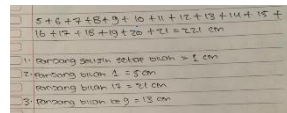 5 + 6 + 7 + 8 + 9 + 10 + 11 + 12 + 13 + 14 + 15 +
16 + 17 + 18 + 19 + 20 + 21 = 221 cm
1. Panjang selisih setiap bilah = 1 cm
2. Panjang bilah 1 = 5 cm
Panjang bilah 17 = 21 cm
3. Panjang bilah ke 9 = 13 cm